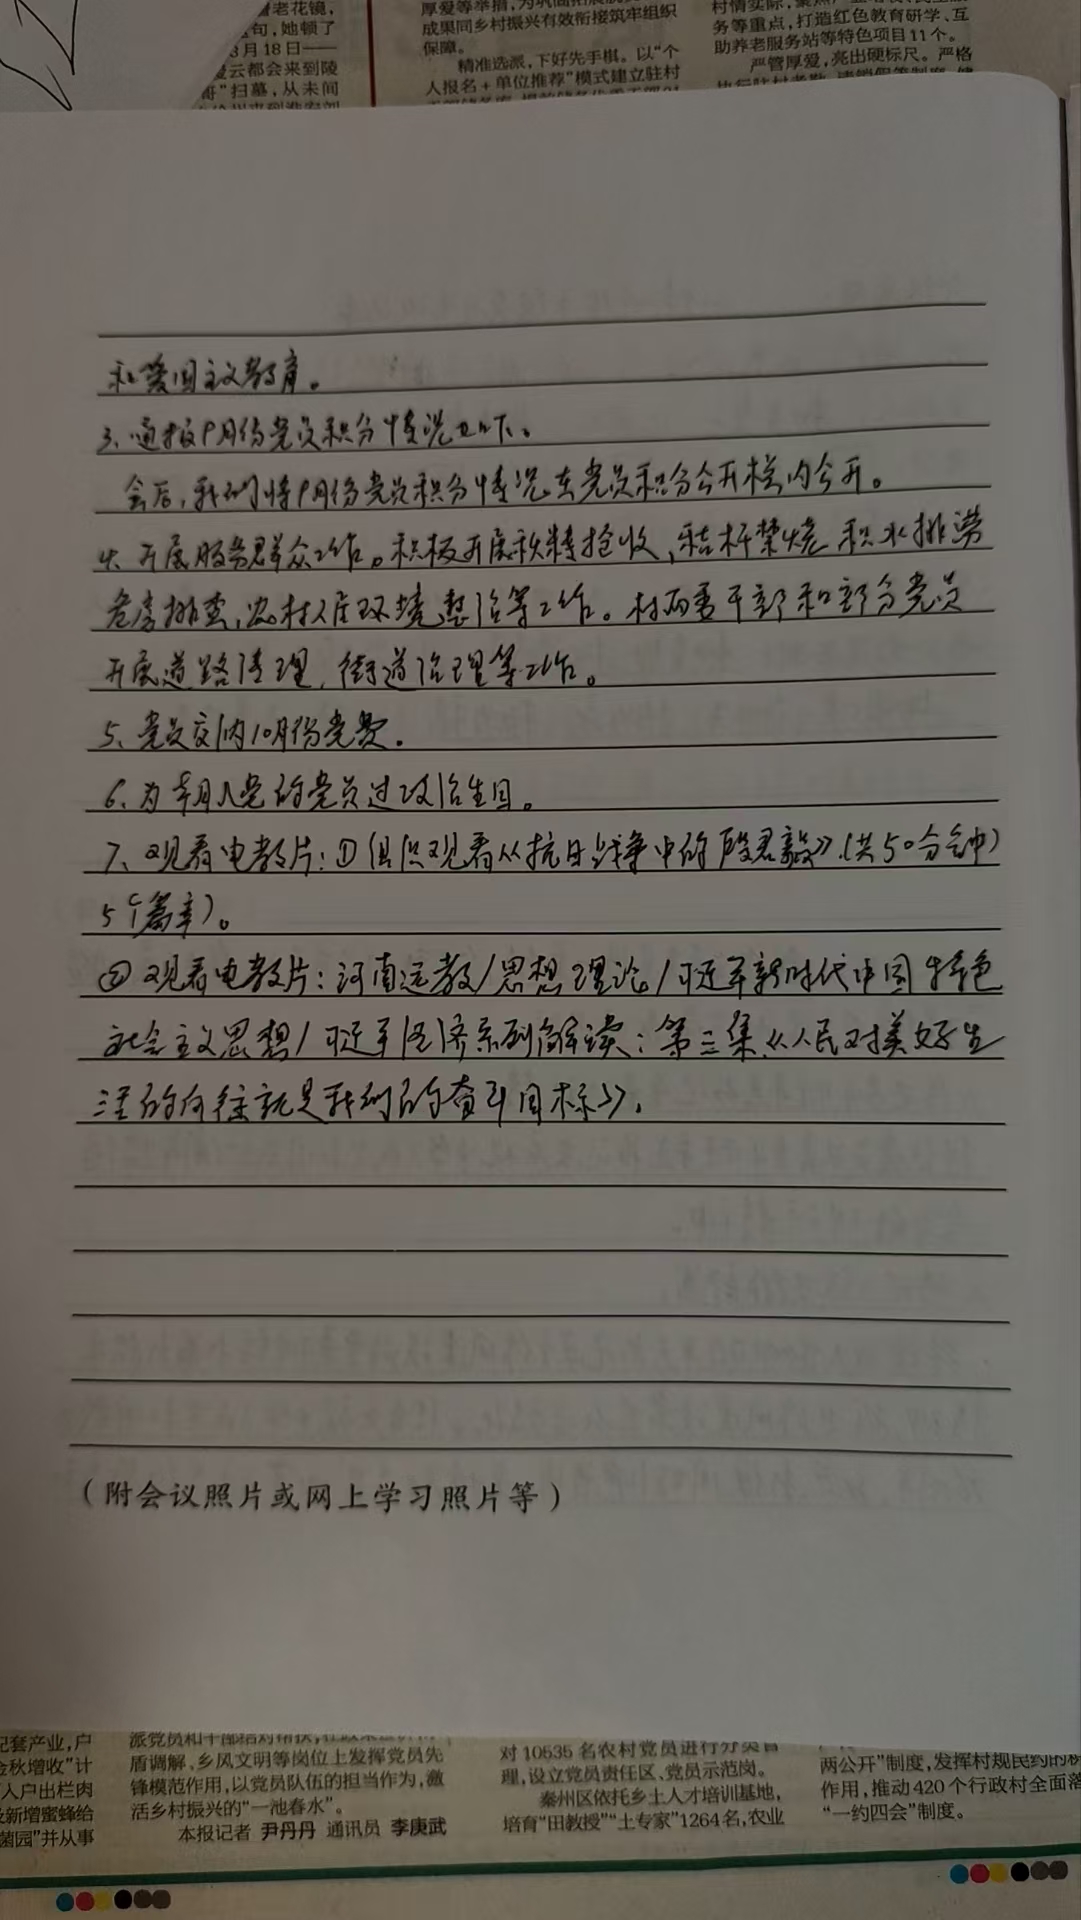 着老花镜，
句，她顿了
3月18日——
云都会来到陵
哥”扫墓，从未间
厚爱等举措，为巩固拓展脱
成果同乡村振兴有效衔接筑牢组织
保障。
精准选派，下好先手棋。以“个
人报名+单位推荐”模式建立驻村
务等重点，打造红色教育研学、互
助养老服务站等特色项目11个。
严管厚爱，亮出硬标尺。严格
和爱国主义教育。
3、通报9月份党员积分情况如下。
会后，我们将9月份党员积分情况在党员积分公开栏内公开。
4、开展服务群众工作。积极开展秋粮抢收，秸秆禁烧 积水排涝
危房排查，农村人居环境整治等工作。村两委干部和部分党员
开展道路清理，街道治理等工作。
5、党员交纳10月份党费.
6、为本月入党的党员过政治生日。
7、观看电教片：①组织观看《抗日战争中的段君毅》.(共50分钟)
5个篇章)。
②观看电教片：河南远教/思想理论/习近平新时代中国特色
社会主义思想/习近平经济系列解读：第三集《人民对美好生
活的向往就是我们的奋斗目标》.
（附会议照片或网上学习照片等）
配套产业，户
金秋增收”计
入户出栏肉
新增蜜蜂给
菌园”并从事
盾调解、乡风文明等岗位上发挥党员先
锋模范作用，以党员队伍的担当作为，激
活乡村振兴的“一池春水”。
本报记者 尹丹丹 通讯员 李庚武
对10535名农村党员进行分类管
理，设立党员责任区、党员示范岗。
秦州区依托乡土人才培训基地，
培育“田教授”“土专家”1264名，农业
两公开”制度，发挥村规民约的积
作用，推动420个行政村全面落
“一约四会”制度。